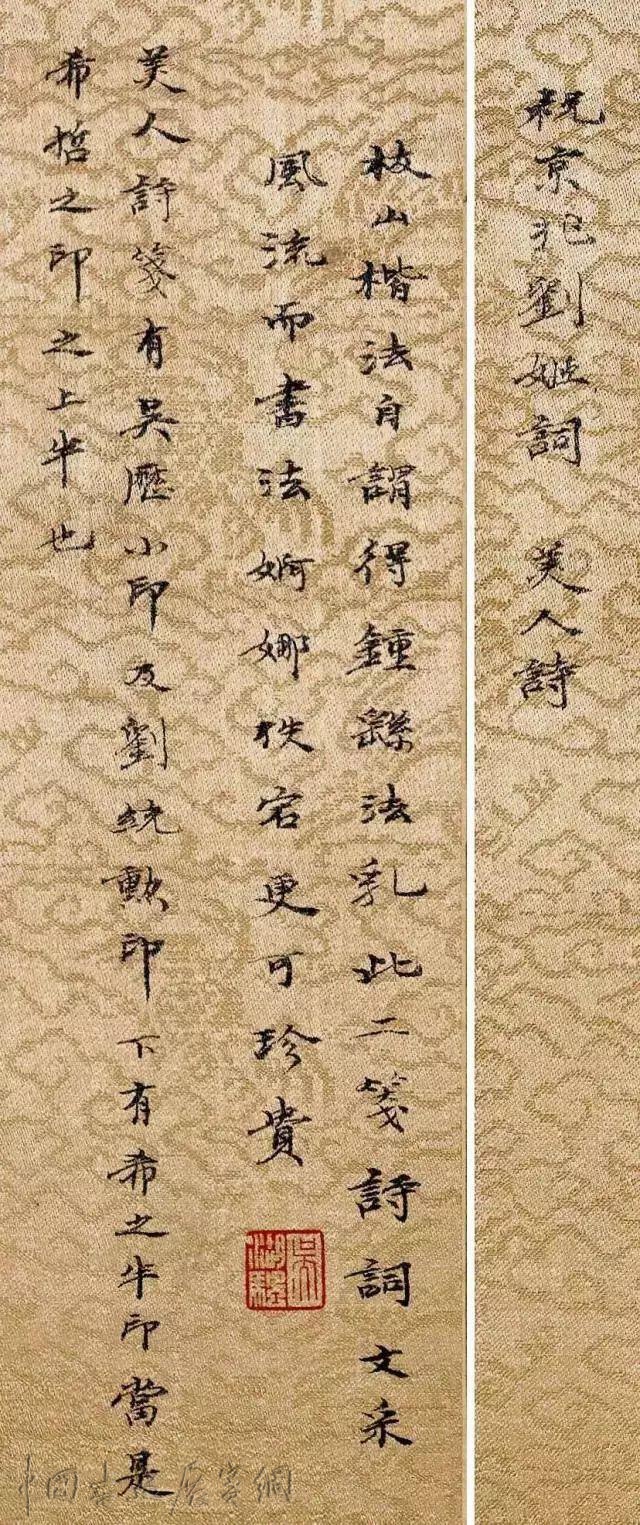 祝京兆劉姬詞　美人詩
枝山楷法自謂得鍾繇法乳此二箋詩詞文采
風流而書法婀娜佚宕更可珍貴
吳湖颿
美人詩箋有吳歷小印及劉統勳印　下有希之半印當是
希哲之印之上半也
中國書法展賽網